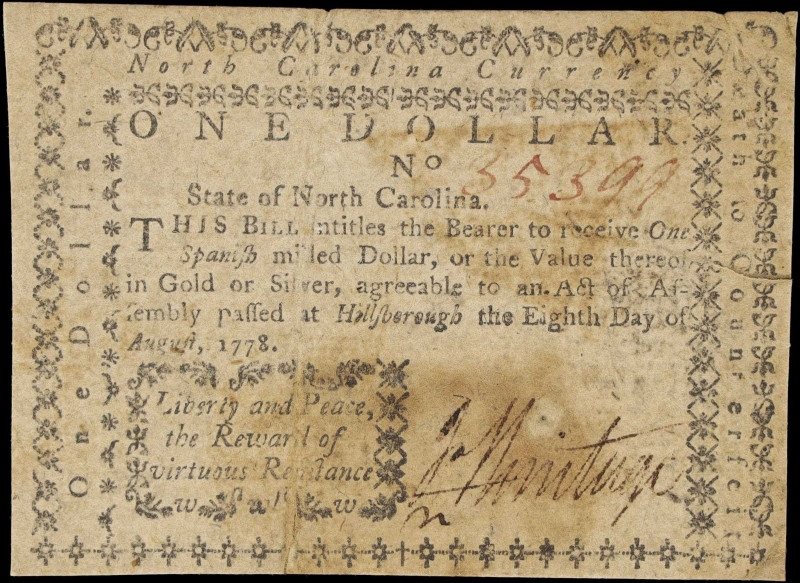 North Carolina Currency
ONE DOLLAR.
No 35399
State of North Carolina.
THIS BILL intitles the Bearer to receive One
Spaniſh milled Dollar, or the Value thereof
in Gold or Silver, agreeable to an Act of Aſ-
ſembly paſſed at Hillſborough the Eighth Day of
Auguſt, 1778.
Liberty and Peace,
the Reward of
virtuous Reſiſtance
One Dollar.
Death to Counterfeit